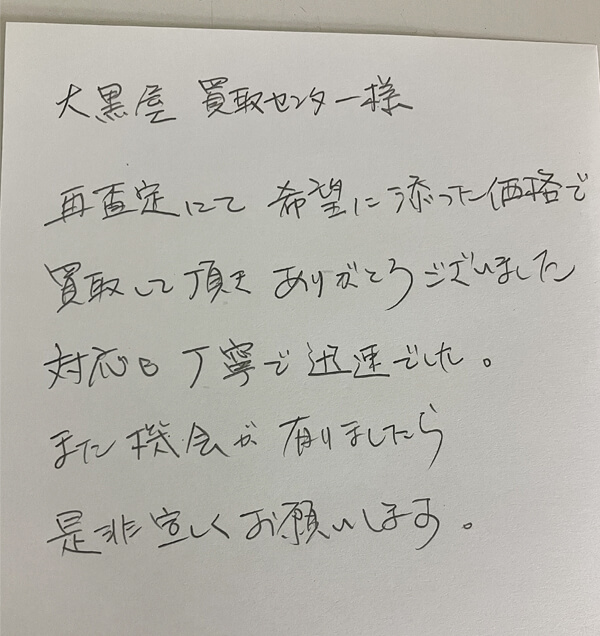 大黒屋 買取センター様
再査定にて 希望に添った価格で
買取して頂き ありがとうございました
対応も 丁寧で 迅速でした。
また 機会が 有りましたら
是非宜しくお願いします。